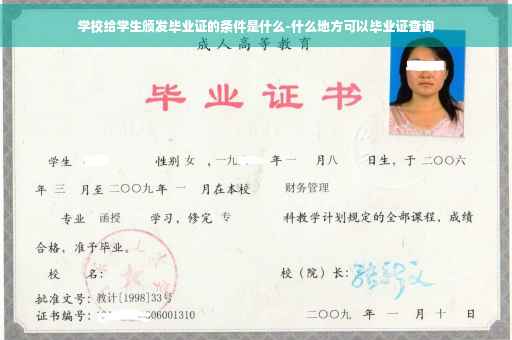 学校给学生颁发毕业证的条件是什么-什么地方可以毕业证查询
成人高等教育
毕业证书
学生 性别 女 ，一九 年 一 月 八 日生，于 二〇〇六
年 三 月至 二〇〇九 年 一 月在本校 财务管理
专业 函授 学习，修完 专 科教学计划规定的全部课程，成绩
合格，准予毕业。
校 名： 校（院）长：
批准文号：教计[1998]33号
证书编号： 06001310 二〇〇九 年 一 月 十 日